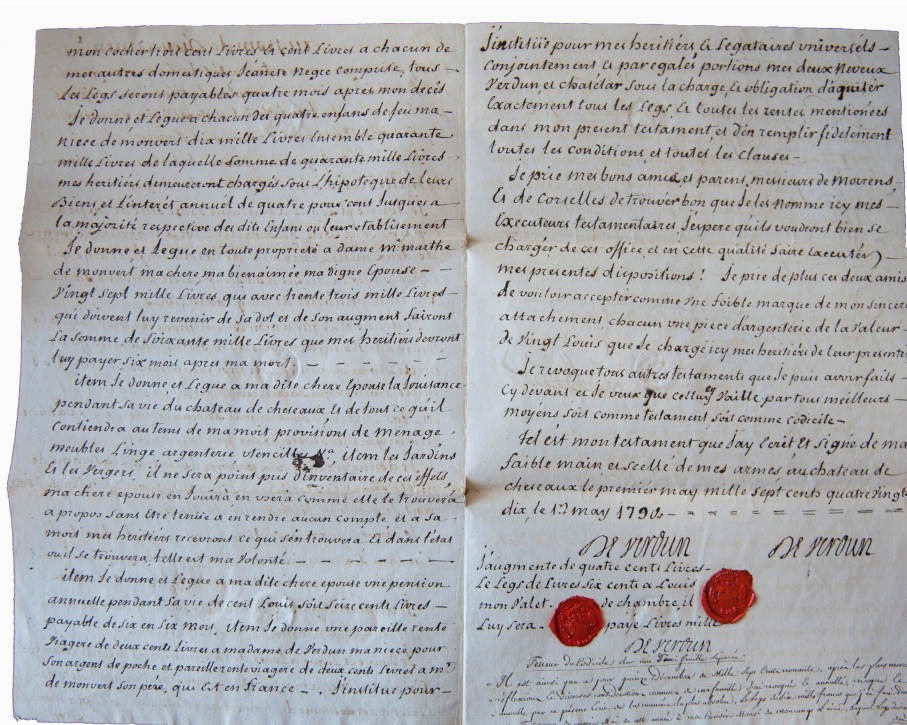 mon cocher trois cent Livres Et cent Livres a chacun de
mes autres domestiques Jeanete Negre comprise, tous —
Les Legs seront payables quatre mois apres mon decés
Je donne et Legue a chacun des quatre enfans de feu ma —
niece de monvert dix mille Livres Ensemble quarante
mille Livres de laquelle somme de quarante mille Livres
mes heritiers demeureront chargés sous L'hipoteque de leurs
Biens et L'interet annuel de quatre pour cent Jusques a
la majorité respective des dits Enfans ou leur etablissement
Je donne et Legue en toute proprieté a dame marthe
de monvert ma chere ma bienaimée ma digne Epouse — —
Vingt sept mille Livres, qui avec trente trois mille Livres —
qui doivent luy revenir de sa dot et de son augment fairont
La somme de Soixante mille Livres que mes heritiers devront
luy payer six mois apres ma mort. — — — — —
item Je donne et Legue a ma dite chere Epouse la Jouisance
pendant sa vie du chateau de cheseaux Et de tout ce qu'il
contiendra au tems de ma mort provisions de menage
meubles Linge argenterie Utencilles item les Jardins
Et les Vergers, il ne sera point pris d'inventaire de ces effets
ma chere epouse en Jouira en usera comme elle le trouvera
a propos sans Etre tenüe a en rendre aucun compte, et a sa
mort mes heritiers recevront ce qui s'en trouvera Et dans l'etat
ou il se trouvera, telle est ma Volonté — — — — —
item Je donne et Legue a ma dite chere epouse une pension
annuelle pendant sa vie de cent Louis, soit seize cents Livres —
payable de six en six mois, item Je donne une pareille rente
Viagere de deux cents Livres a madame de Verdun ma niece, pour
son argent de poche et pareille rente viagere de deux cents Livres a mr
de monvert son pere, qui Est en France — . J'institue pour —
J'institüe pour mes heritiers Et Legataires vniversels —
conjointement Et par egales portions mes deux Neveux
Verdun et chatélar sous la charge, Et obligation d'aquiter
Exactement tous les Legs, Et toutes les rentes mentionées
dans mon present testament et d'en remplir fidelement
toutes les conditions et toutes les clauses —
Je prie mes bons amis, et parens, messieurs de Morrens,
Et de Corselles de trouver bon que Je les Nomme icy mes —
Executeurs testamentaires J'espere qu'ils voudront bien se
charger de cet office et en cette qualité faire Executer
mes presentes dispositions ! Je prie de plus ces deux amis
de vouloir accepter comme une foible marque de mon sincere
attachement, chacun vne piece d'argenterie de la Valeur —
de Vingt Louis que Je charge icy mes heritiers de leur presenter
Je revoque tous autres testaments que Je puis avoir faits —
Cy devant et Je veux que celluy cy Vaille par tous meilleurs —
moyens soit comme testament, soit comme codicile —
tel est mon testament que J'ay Ecrit Et signé de ma
faible main et scellé de mes armes au chateau de
cheseaux le premier may mille sept cents quatre Vingt
dix, le 1er may 1790. — = = = = = =
De Verdun De Verdun
J'augmente de quatre cents Livres —
Le Legs de Livres Six cents a Louis
mon Valet. de chambre, il
Luy sera — payé Livres mille
De Verdun
Teneur du Codicile sur une feuille separée
Il est ainsi que ce jour quinze Décembre de Mille Sept Cents nonante, après les plus mures
réflexions